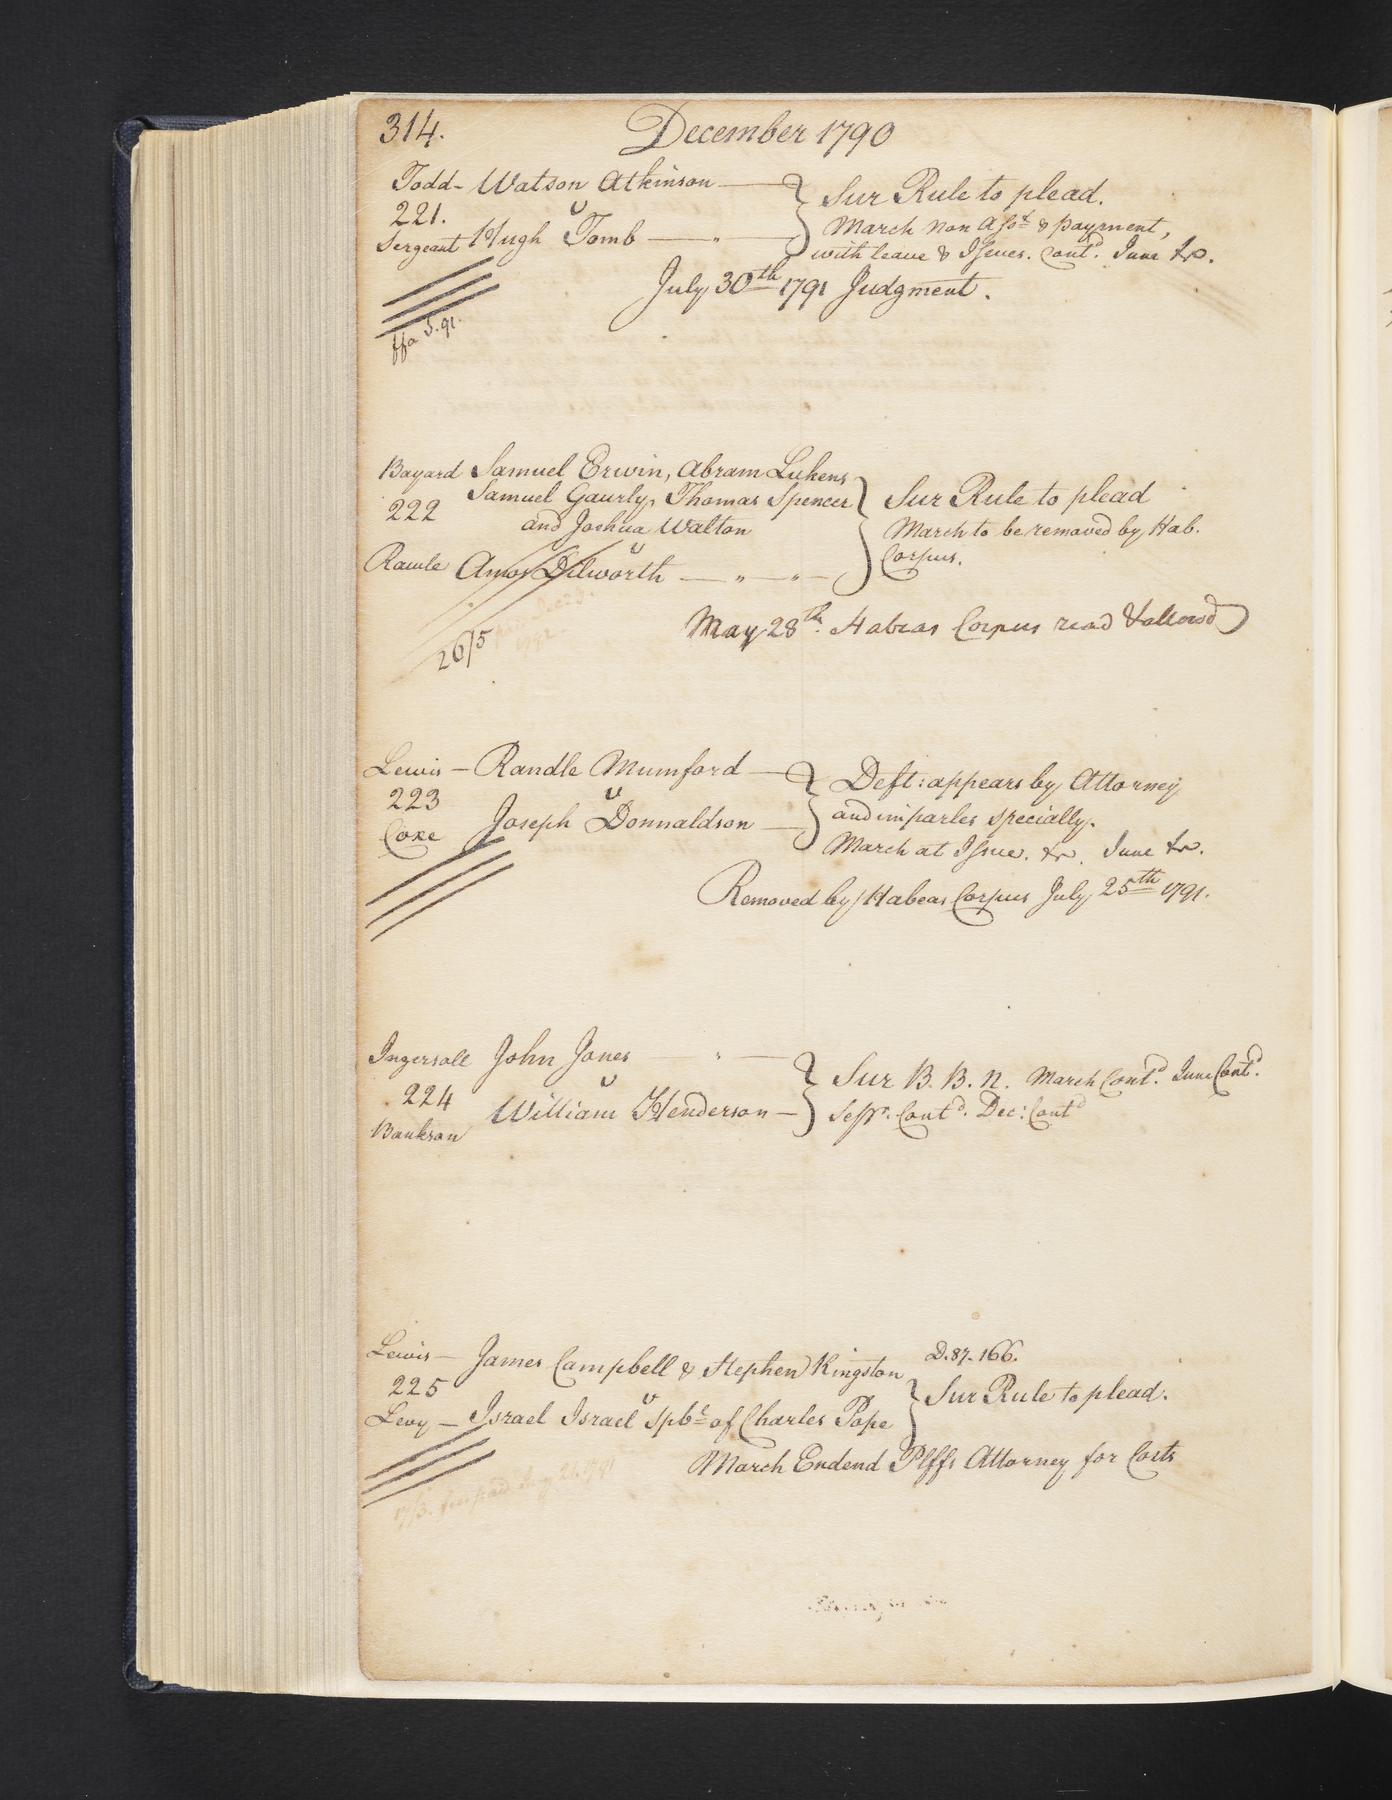 314. December 1790
Todd - Watson Atkinson
221. v
Sergeant Hugh Tomb
Sur Rule to plead.
March Non Asst & payment,
with leave & Issues. Contd. June &c.
July 30th 1791 Judgment.
ffa S. 91.
Bayard Samuel Erwin, Abram Lukens
Samuel Gaurly, Thomas Spencer
222 and Joshua Walton
v
Rawle Amos Dilworth
Sur Rule to plead
March to be removed by Hab.
Corpus.
May 28th. Habeas Corpus read & allowed
26/5
Lewis - Randle Mumford
223 v
Coxe Joseph Donnaldson
Deft: appears by Attorney
and imparles specially.
March at Issue. &c. June &c.
Removed by Habeas Corpus July 25th 1791.
Ingersoll John Jones
224 v
Bankson William Henderson
Sur B. B. N. March Contd. June Contd.
Sepr. Contd. Dec: Contd
Lewis - James Campbell & Stephen Kingston
D. 87. 166.
225 v
Levy - Israel Israel Spbl of Charles Pope
Sur Rule to plead.
March Endend Plffs Attorney for Costs